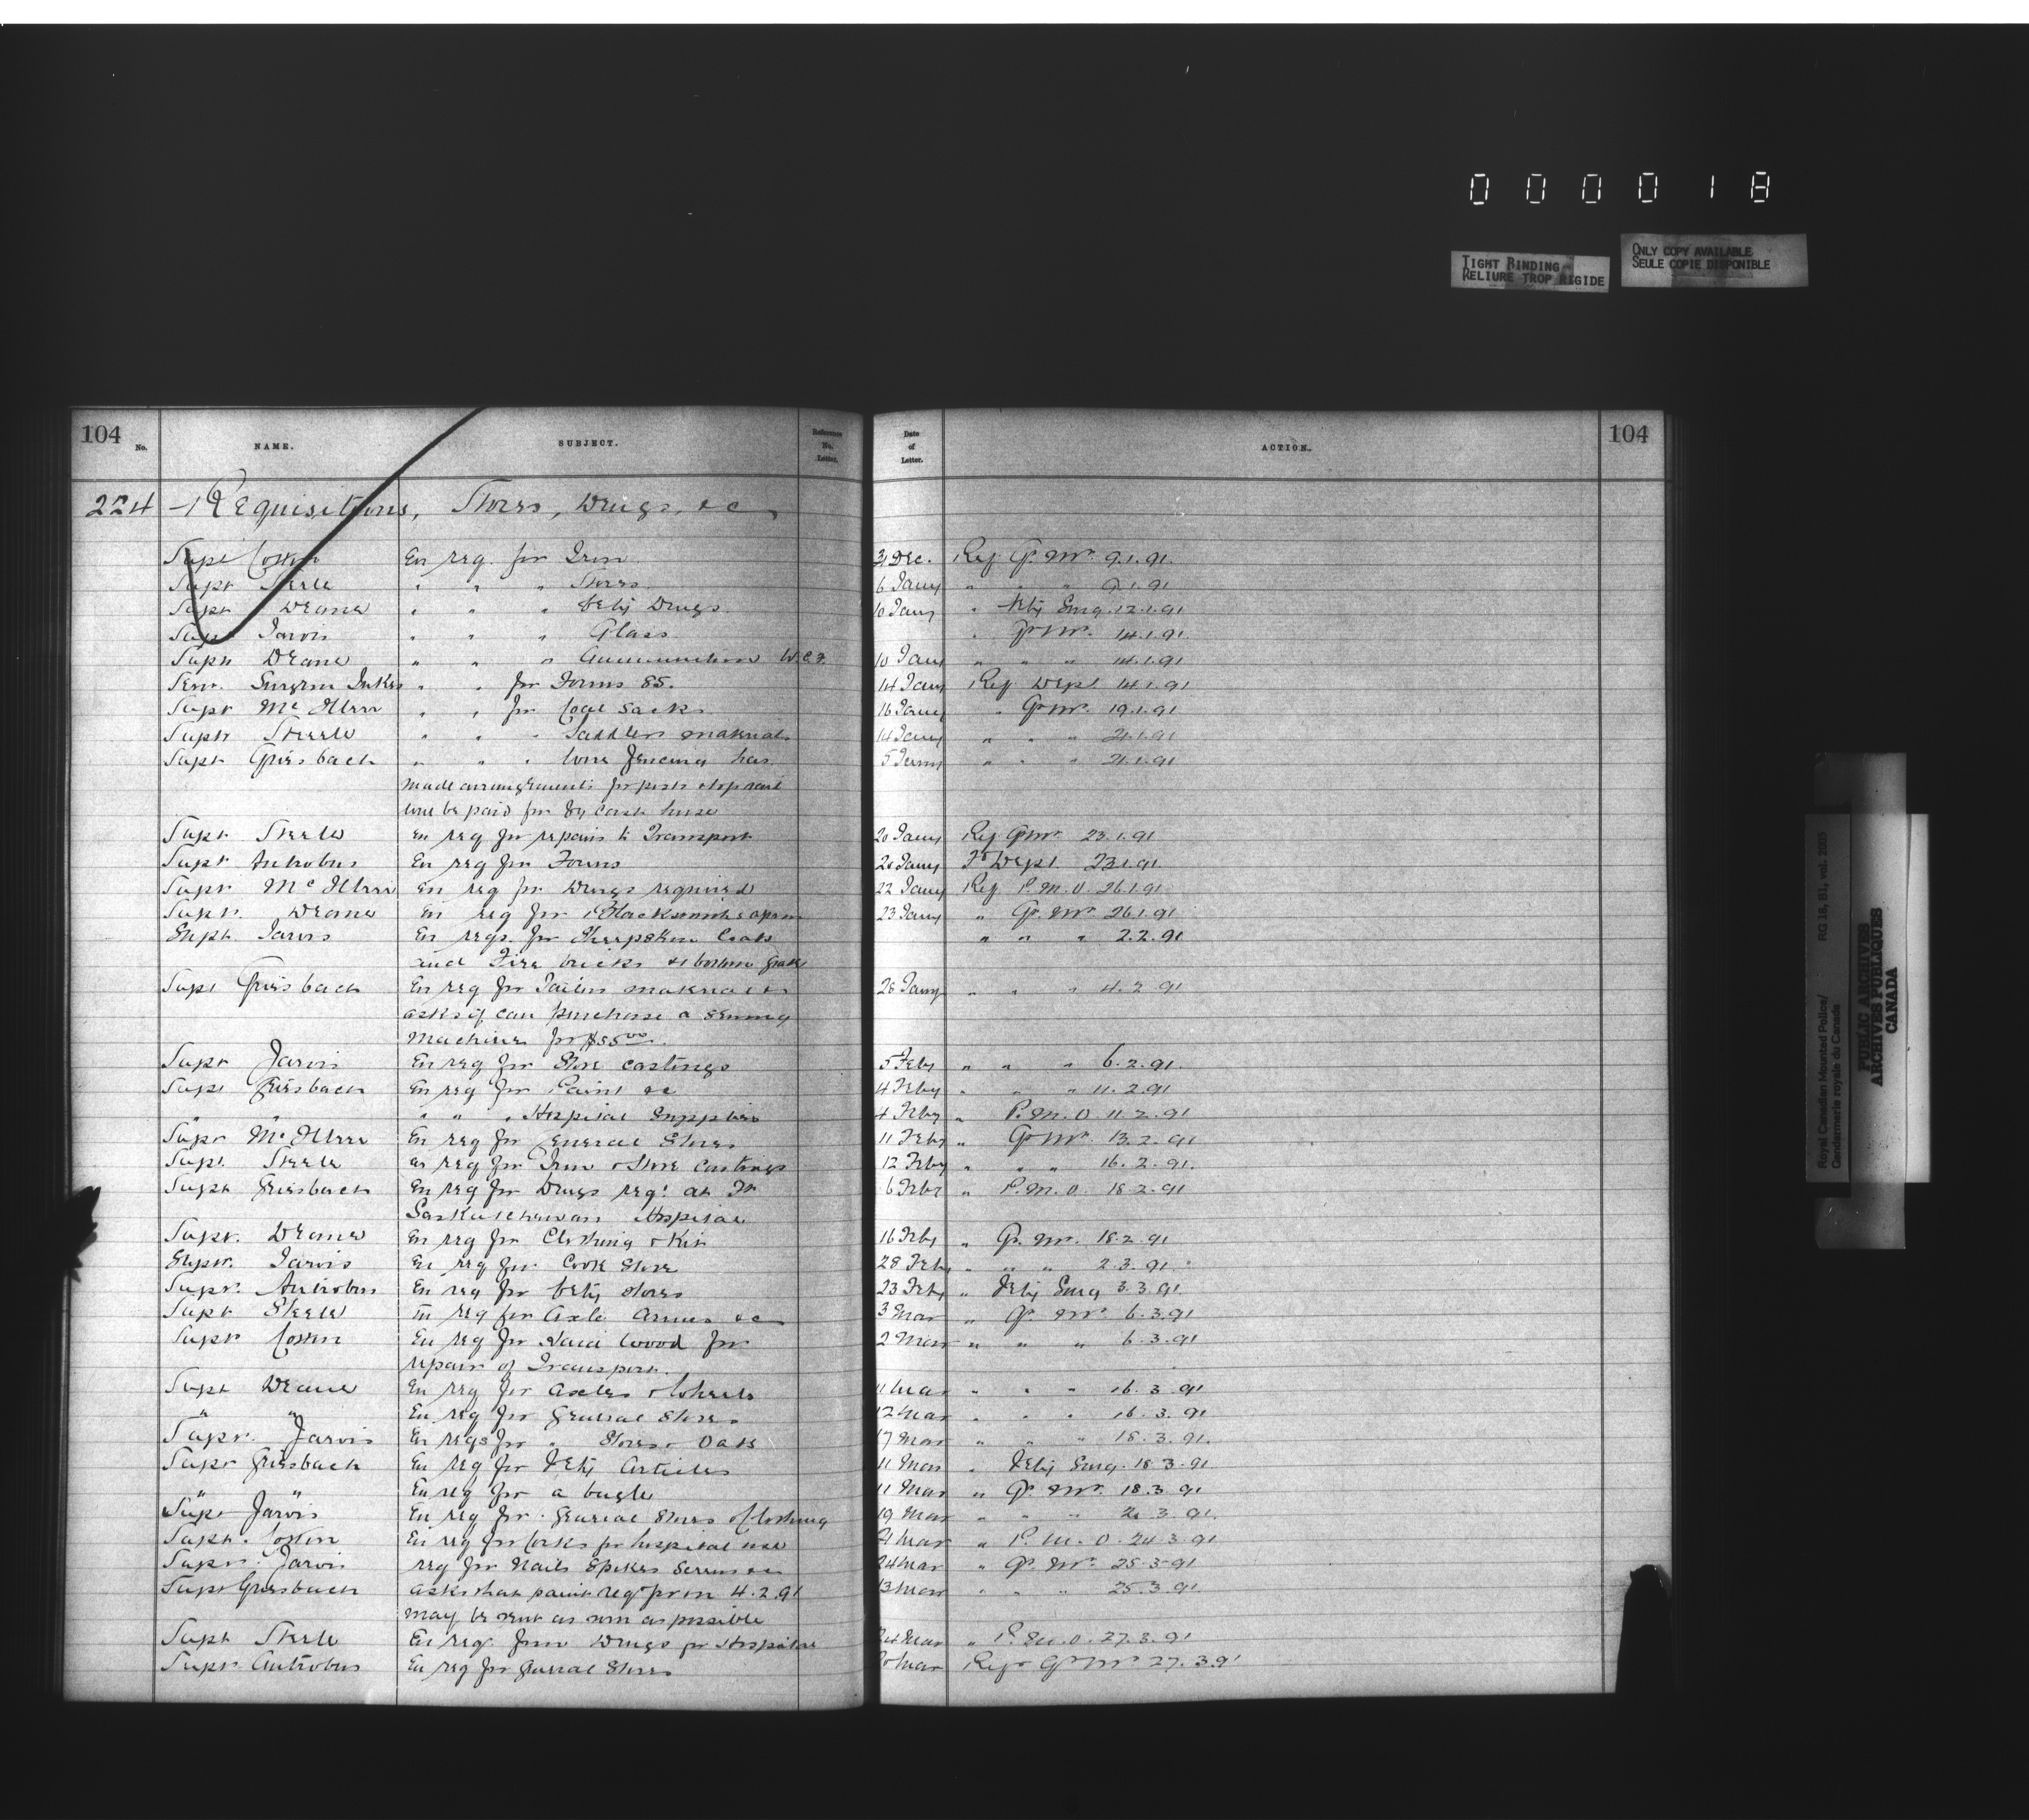 0 0 0 0 1 8
TIGHT BINDING
RELIURE TROP RIGIDE
ONLY COPY AVAILABLE
SEULE COPIE DISPONIBLE
104 No. NAME. SUBJECT. Reference No. Letter. Date of Letter. ACTION. 104
224 Requisitions, Stores, Drugs, &c
Supt Cotton En req. for Iron 31 Dec. Ref Qr Mr. 9.1.91
Supt Steele " " " Stores 6 Jany " " " 9.1.91
Supt Deane " " " Vety Drugs 10 Jany " Vety Surg. 12.1.91
Supt Jarvis " " " Glass " Qr Mr. 14.1.91
Supt Deane " " " Ammunition W.C.F. 10 Jany " " " 14.1.91
Senr. Surgeon Jukes " " for Forms 85. 14 Jany Ref Dept 14.1.91
Supt McIllree " " for Coal Sacks 16 Jany " Qr Mr. 19.1.91
Supt Steele " " " Saddlers materials 14 Jany " " " 21.1.91
Supt Griesbach " " " Wire fencing has 5 Jany " " " 21.1.91
made arrangements for posts & top rail
will be paid for by Cast horse
Supt Steele En req for repairs to Transport 20 Jany Ref Qr Mr 23.1.91
Supt Antrobus En req for Forms 20 Jany To Dept 23.1.91
Supt McIllree En req for Drugs required 22 Jany Ref P.M.O. 26.1.91
Supt. Deane En req for Blacksmiths apron 23 Jany " Qr. Mr 26.1.91
Supt. Jarvis En reqs. for Sheepskin Coats " " " 2.2.91
and Fire bricks & bottom grate
Supt Griesbach En req for Tailors materials 28 Jany " " " 4.2.91
asks if can purchase a sewing
machine for $55.00.
Supt Jarvis En req for Stove castings 5 Feby " " " 6.2.91
Supt Griesbach En req for Paint &c 4 Feby " " " 11.2.91
" " " " " Hospital Supplies 4 Feby " P.M.O 11.2.91
Supt McIllree En req for General Stores 11 Feby " Qr Mr. 13.2.91
Supt. Steele En req for Iron & Stove castings 12 Feby " " " 16.2.91.
Supt Griesbach En req for Drugs reqd at Ft 6 Feby " P.M.O. 18.2.91
Saskatchewan Hospital
Supt. Deane En req for Clothing & Kit 16 Feby " Qr. Mr. 18.2.91
Supt. Jarvis En req for Cook Stove 28 Feby " " " 2.3.91.
Supt. Antrobus En req for Vety stores 23 Feby " Vety Surg 3.3.91
Supt Steele En req for Axle Arms &c 3 Mar " Qr Mr. 6.3.91
Supt Cotton En req for Hard Wood for 2 Mar " " " 6.3.91
repair of Transport.
Supt Deane En req for Axles & Wheels 11 Mar " " " 16.3.91
" " En req for General Stores 12 Mar " " " 16.3.91
Supt. Jarvis En reqs for " Stores & Oats 17 Mar " " " 18.3.91.
Supt Griesbach En req for Vety Articles 11 Mar " Vety Surg. 18.3.91
" " En req for a bugle 11 Mar " Qr Mr. 18.3.91
Supt Jarvis En req for General Stores & Clothing 19 Mar " " " 3.91.
Supt. Cotton En req for Corks for hospital use 21 Mar " P.M.O. 24.3.91
Supt. Jarvis req for Nails Spikes Screws &c 24 Mar " Qr Mr. 25.3.91
Supt Griesbach asks that paint reqd for in 4.2.91 13 Mar " " " 25.3.91
may be sent as soon as possible
Supt Steele En req from Drugs for Hospital 24 Mar " P.M.O. 27.3.91
Supt. Antrobus En req for General Stores Mar Ref to Qr Mr 27.3.91
Royal Canadian Mounted Police/ RG 18, B1, vol. 2035
Gendarmerie royale du Canada
PUBLIC ARCHIVES
ARCHIVES PUBLIQUES
CANADA